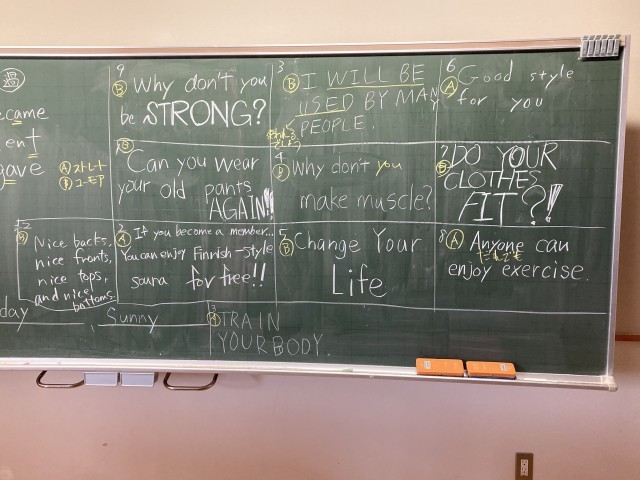 過
came
ent
gave
Ⓐストレート
Ⓑユーモア
9
Ⓑ Why don't you
be STRONG?
3
Ⓑ I WILL BE
USED BY MANY
PEOPLE.
6
Ⓐ Good style
for you
Can you wear
your old pants
AGAIN!!
4
Why don't you
make muscle?
7
DO YOUR
CLOTHES
FIT?!!
12
Nice backs,
nice fronts,
nice tops,
and nice
bottoms
2
Ⓐ If you become a member...
You can enjoy Finnish-style
sauna for free!!
5
Ⓑ Change Your
Life
8
Ⓐ Anyone can
だれでも
enjoy exercise.
day
Sunny
Ⓐ TRAIN
YOUR BODY.